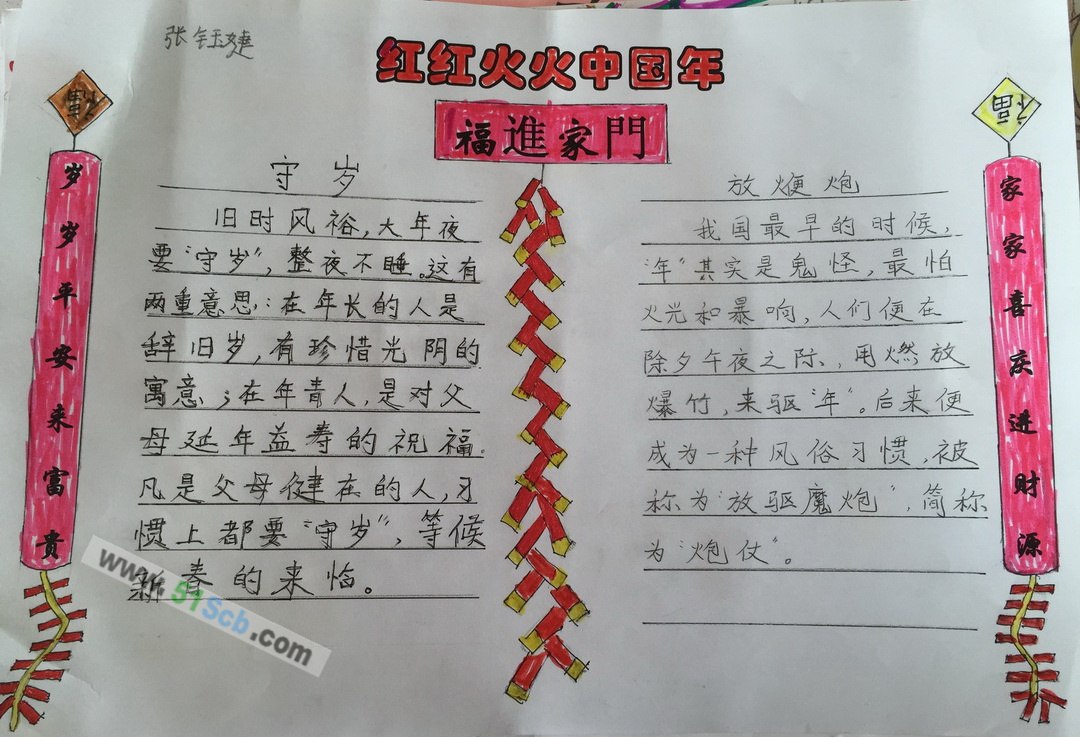 张钰婕
红红火火中国年
福進家門
福
岁岁平安来富贵
守岁
旧时风裕,大年夜
要“守岁”,整夜不睡。这有
两重意思:在年长的人是
辞旧岁,有珍惜光阴的
寓意;在年青人,是对父
母延年益寿的祝福.
凡是父母健在的人,习
惯上都要“守岁”,等候
新春的来临。
放炮
我国最早的时候,
“年”其实是鬼怪,最怕
火光和暴响,人们便在
除夕午夜之际、用燃放
爆竹,来驱“年”。后来便
成为一种风俗习惯,被
称为“放驱魔炮”,简称
为“炮仗”。
福
家家喜庆进财源
www.51Scb.com